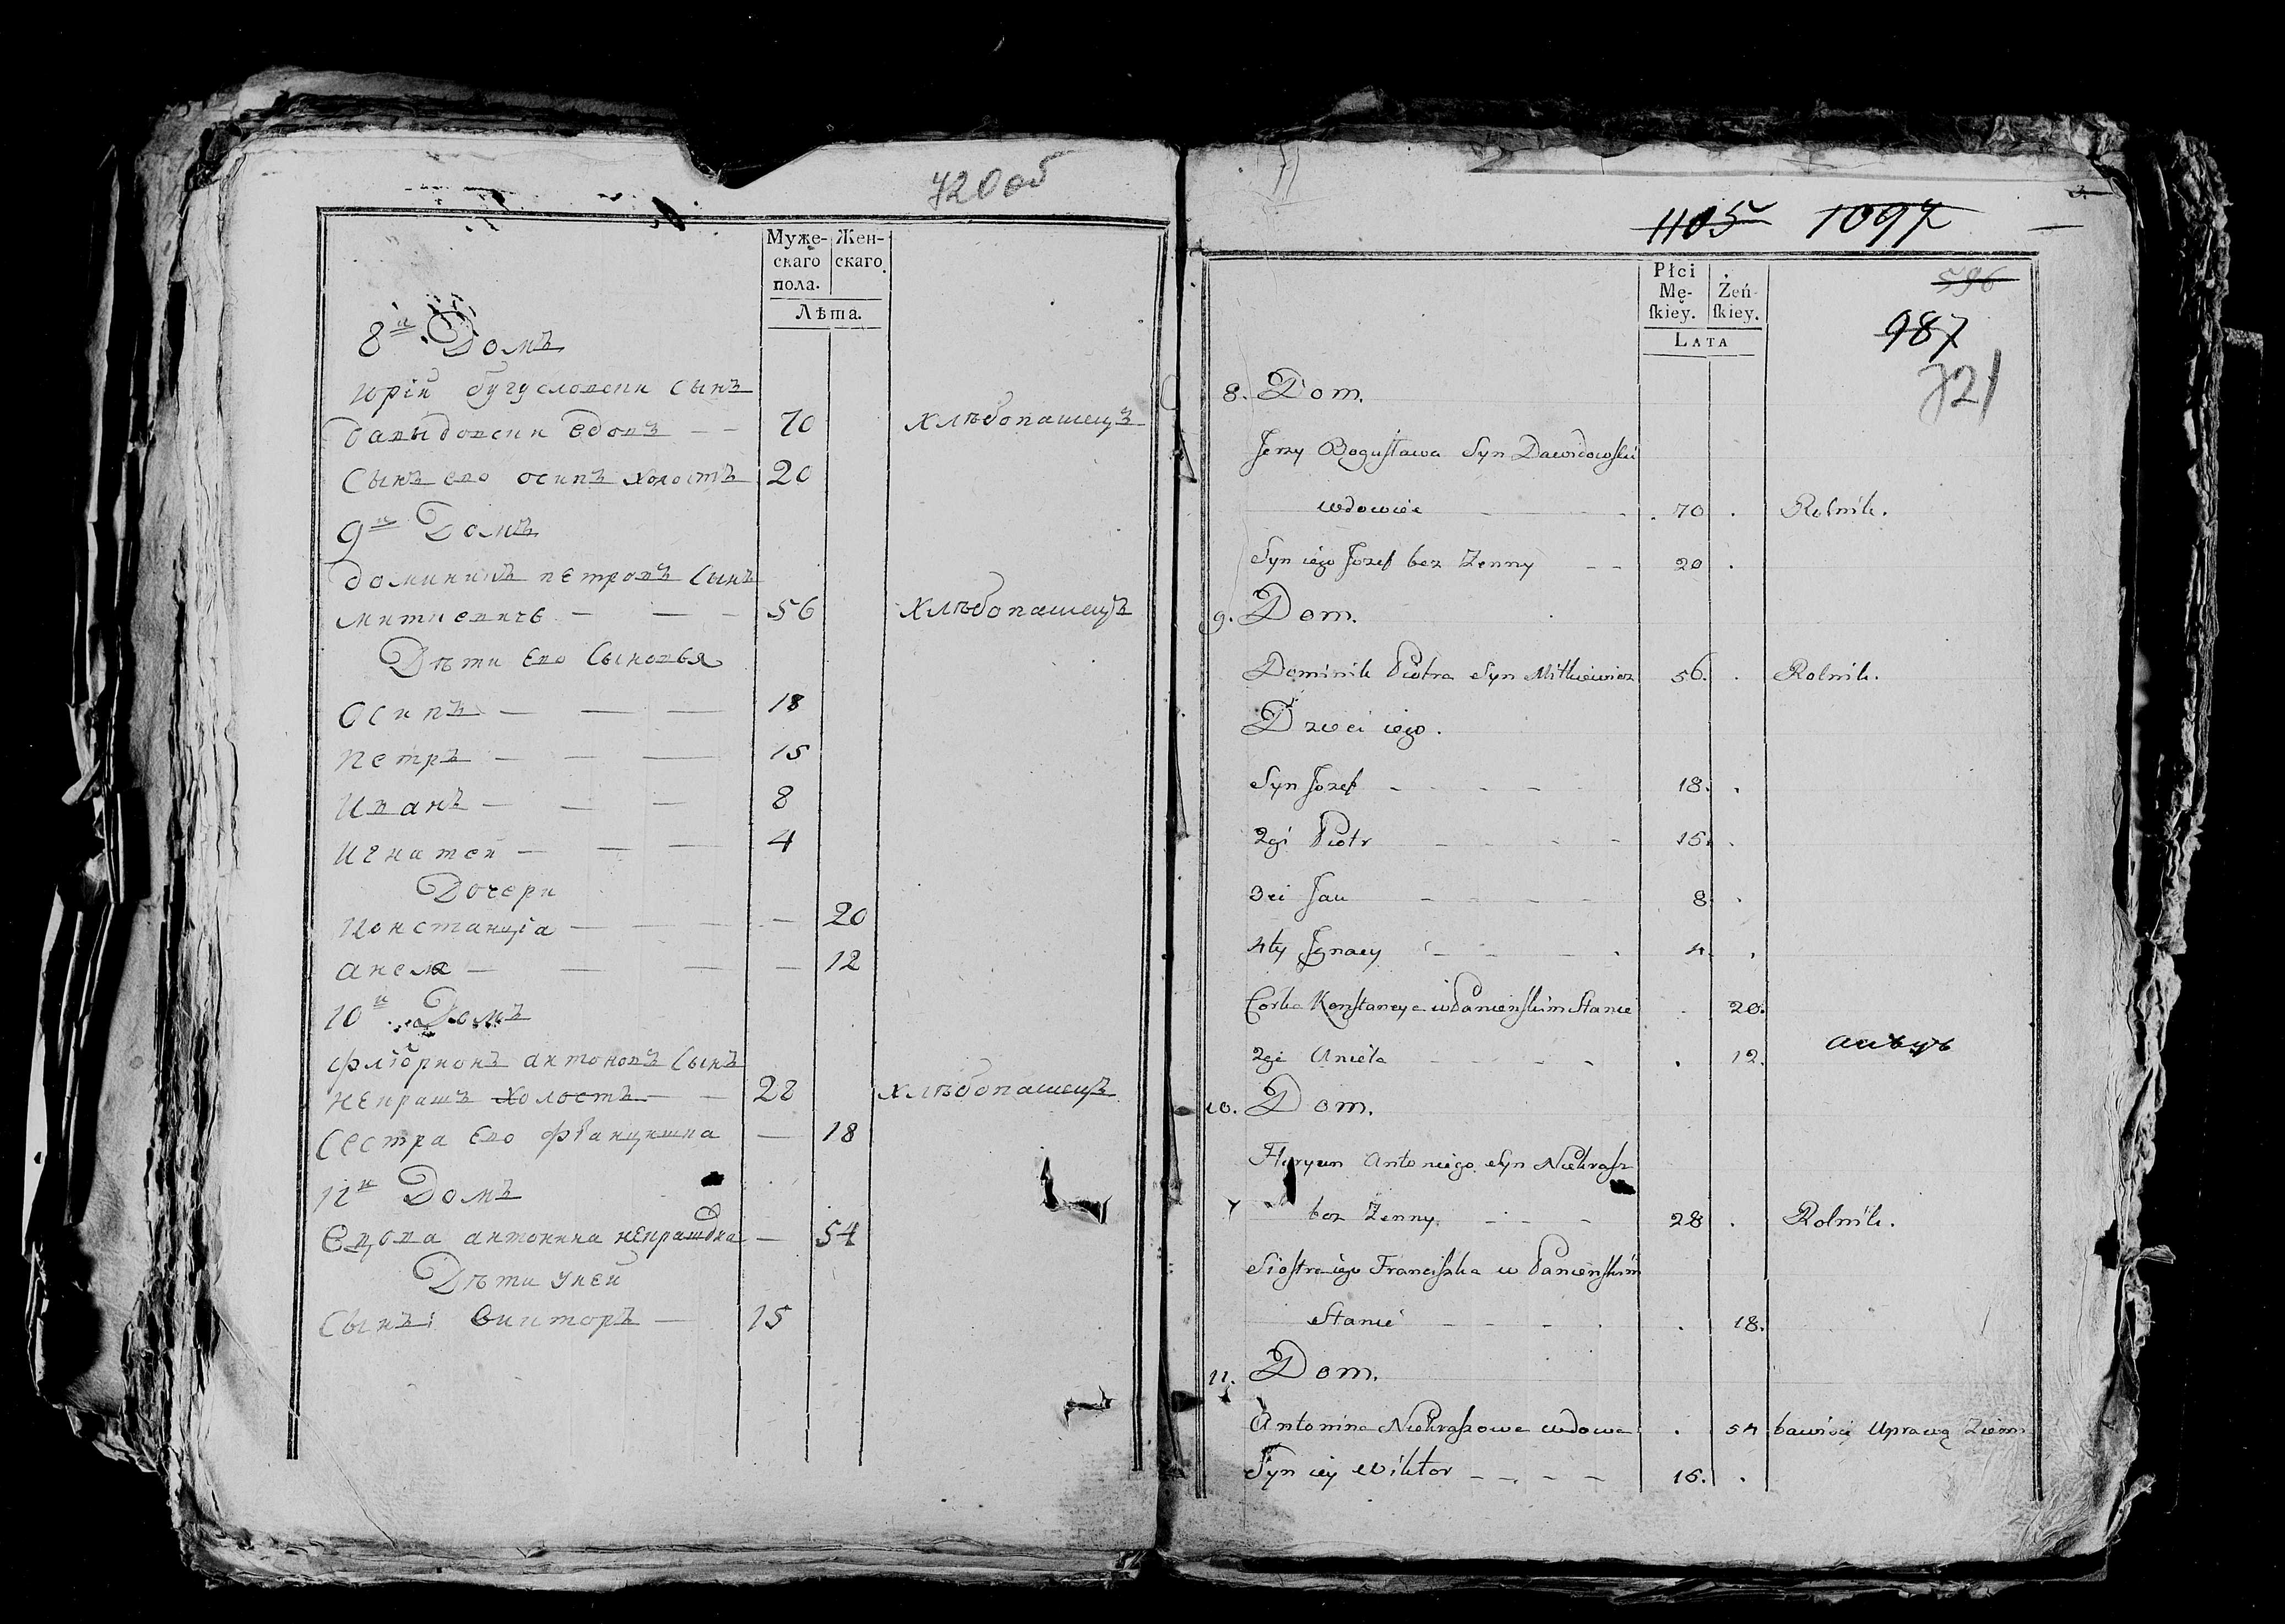 720об
Муже-
скаго
пола.
Жен-
скаго.
Лѣта.
8й Домъ
Юрій бугуславски Сынъ
Давыдовски вдовъ — — 70 хлѣбопашецъ
Сынъ его осипъ холостъ 20
9й Домъ
доминикъ петровъ Сынъ
миткевичь — — — 56 хлѣбопашецъ
Дѣти Его Сыновья
Осипъ — — — 18
петръ — — — 15
Иванъ — — — 8
Игнатей — — — 4
Дочери
Констанція — — — — 20
анеля — — — — 12
10й Домъ
флiорионъ антоновъ Сынъ
некрашъ холостъ — — 28 хлѣбопашецъ
Сестра Его францишка — 18
11й Домъ
Вдова антонина некрашова — 54
Дѣти у ней
Сынъ: Викторъ — 15
1105 1097
596
987
721
Płci
Mę-
ſkiey.
Żeń-
ſkiey.
LATA
8. Dom.
Jerzy Bogusława Syn Dawidowski
wdowiec 70 Rolnik.
Syn iego Jozef bez Zenny 20
9. Dom.
Dominik Piotra Syn Mitkiewicz 56. Rolnik.
Dzieci iego.
Syn Jozef 18.
2gi Piotr 15.
3ci Jan 8
4ty Jgnacy 4.
Corka Konstancya w Panienskim Stanie 20.
2ga Aniela 12.
10. Dom.
Floryan Antoniego Syn Niekrasz
bez Zenny. 28 Rolnik.
Siostra iego Franciszka w Panienskim
Stanie 18.
11. Dom.
Antonina Niekraszowa wdowa 54 bawiąca Uprawą Ziemi
Syn iey Wiktor 15.